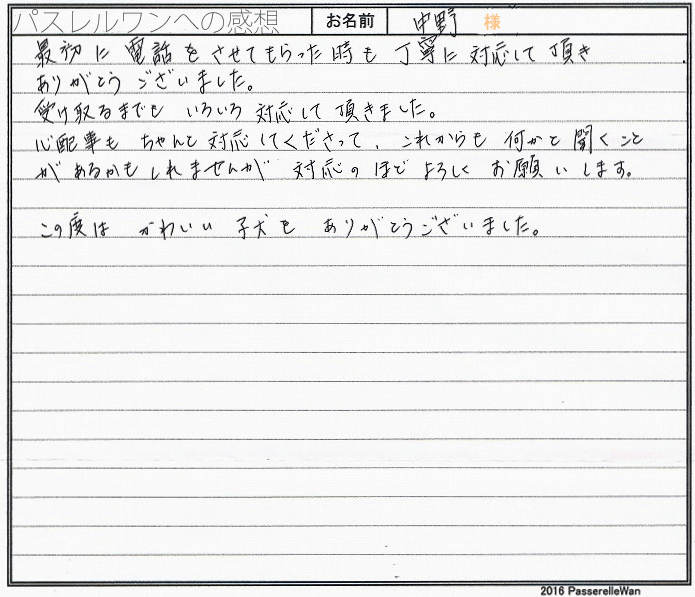 パスレルワンへの感想 お名前 中野 様
最初に電話をさせてもらった時も丁寧に対応して頂き
ありがとうございました。
受け取るまでも いろいろ対応して頂きました。
心配事も ちゃんと対応してくださって、これからも何かと聞くこと
があるかもしれませんが 対応のほどよろしくお願いします。
この度は かわいい子犬を ありがとうございました。
2016 PasserelleWan